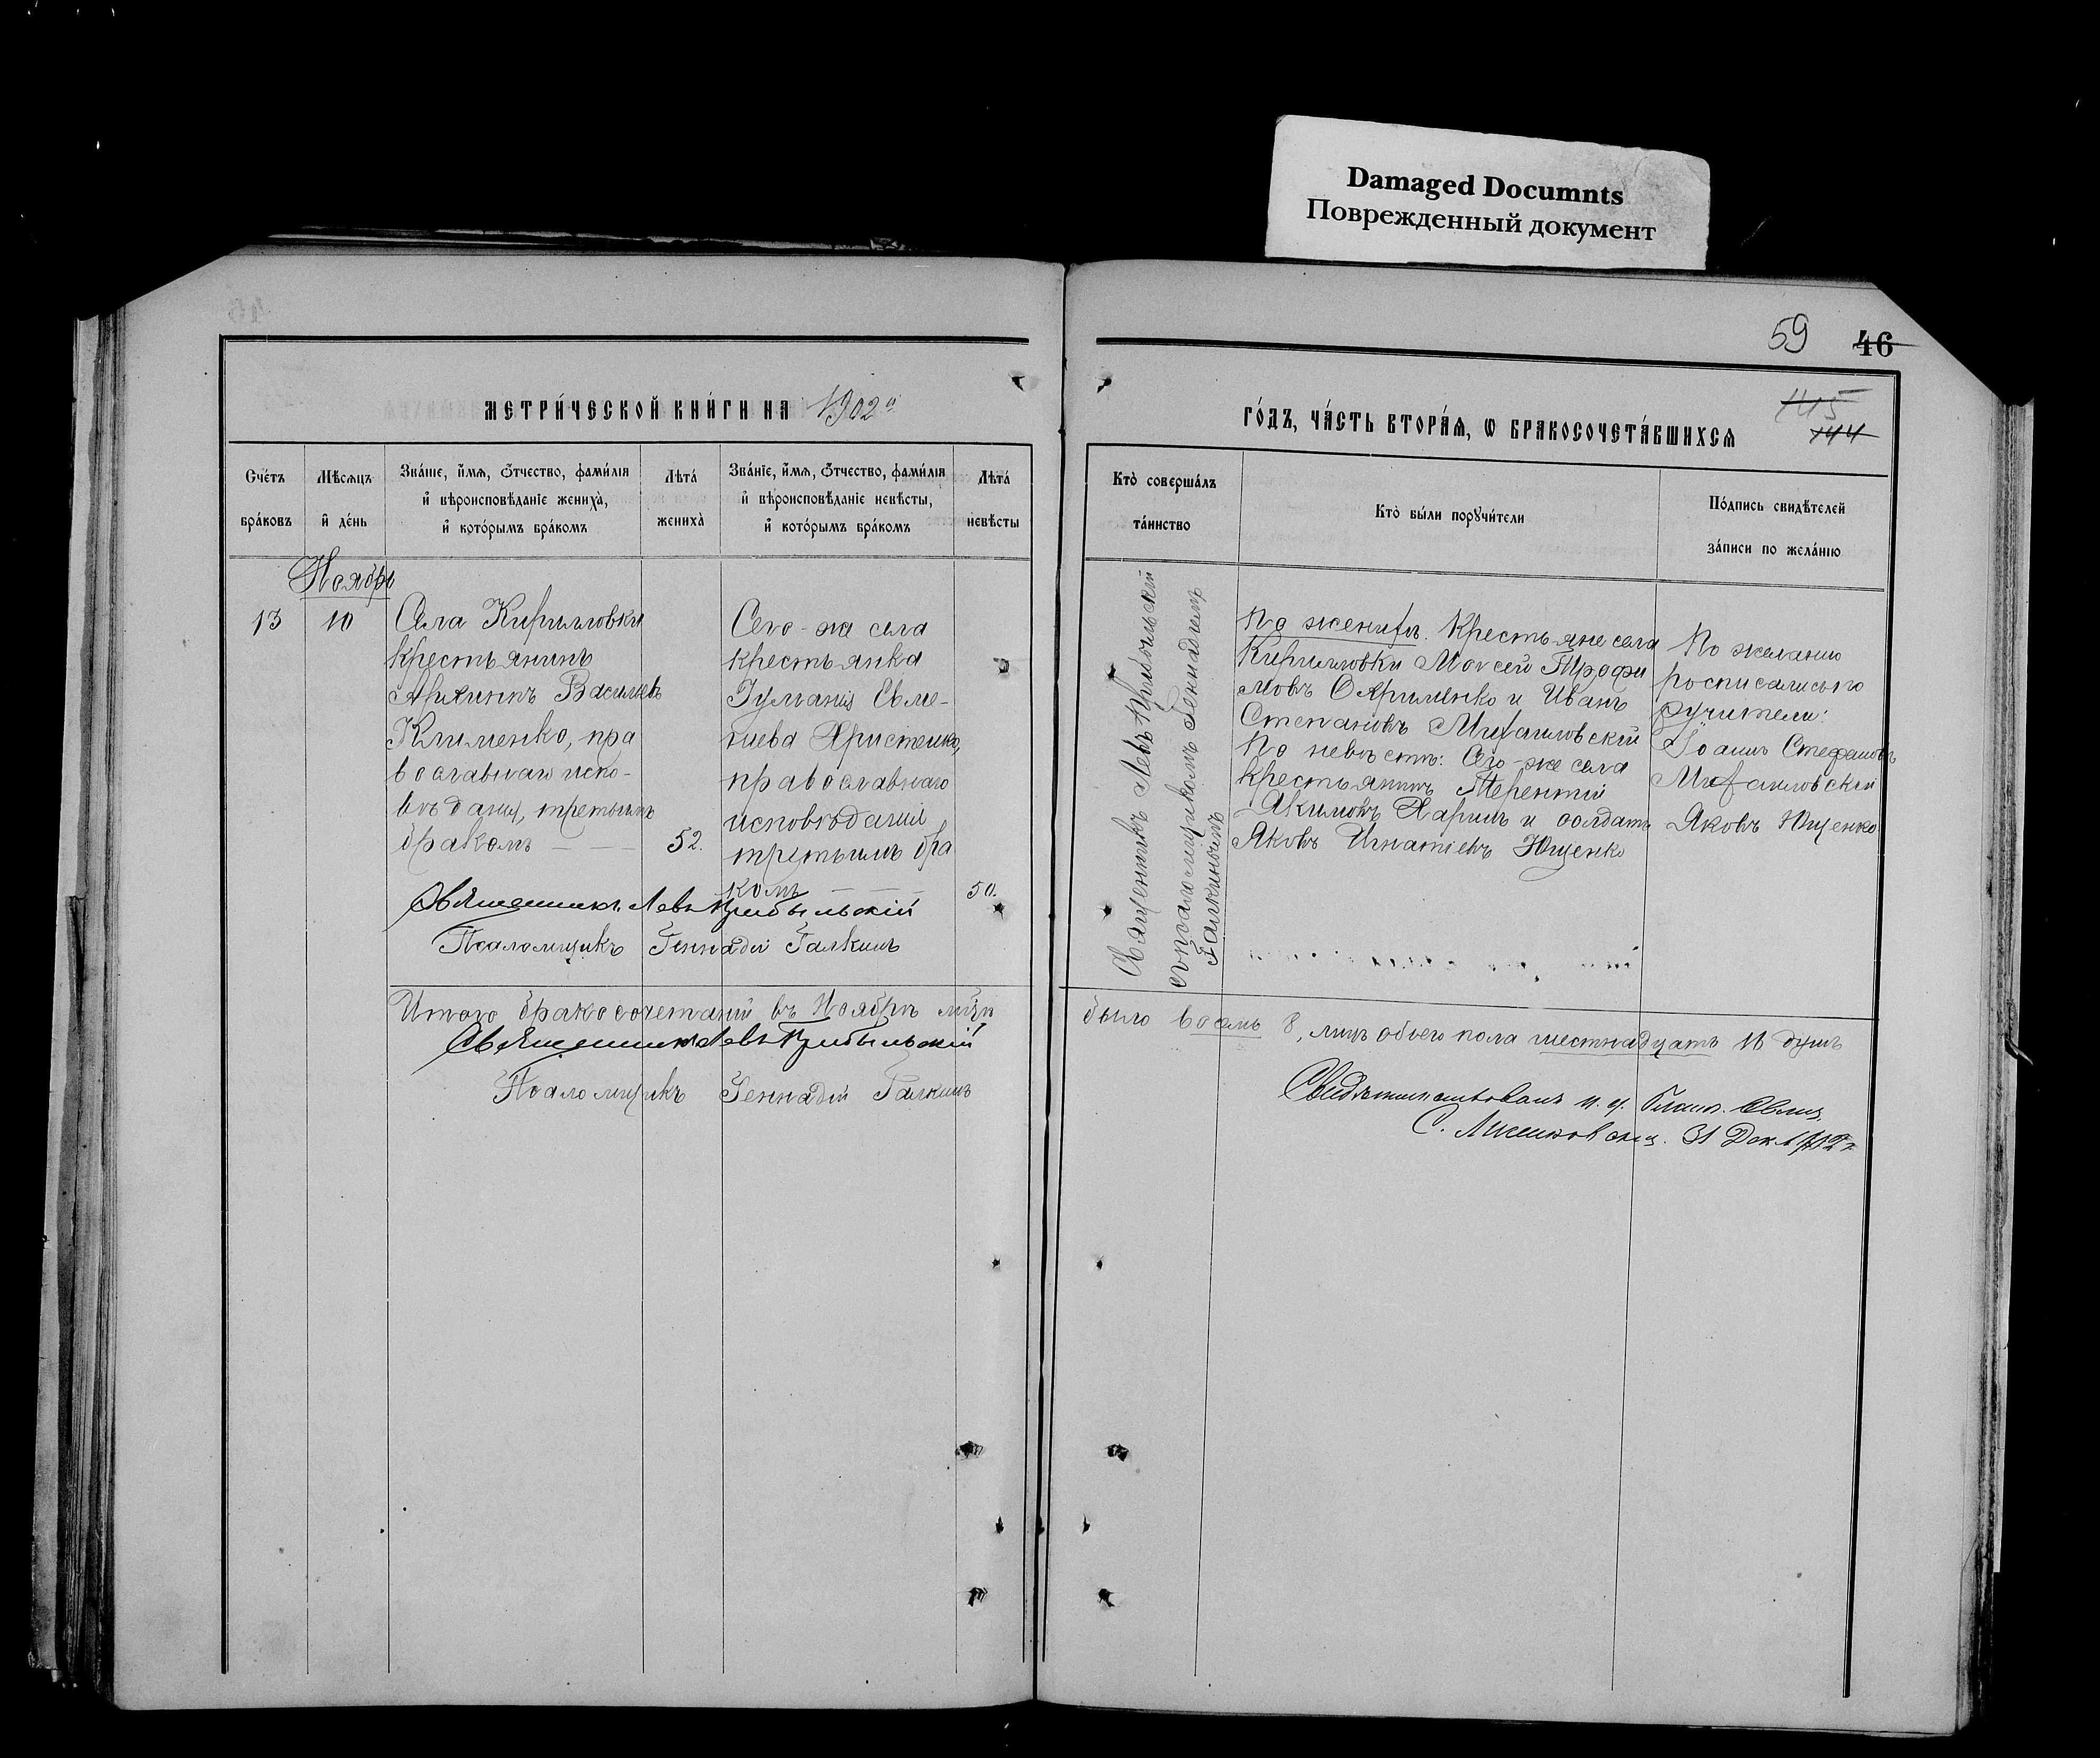 Damaged Documnts
Поврежденный документ
59 46
145
144
МЕТРИ́ЧЕСКОЙ КНИ́ГИ НА 1902й
ГО́ДЪ, ЧА́СТЬ ВТОРА́Ѧ, Ѡ БРАКОСОЧЕТА́ВШИХСѦ
Сче́тъ бра́ковъ
Мѣ́сѧцъ и де́нь
Зва́нїе, и́мѧ, ѻ́тчество, фами́лїѧ
и вѣроисповѣ́данїе жениха̀,
и кото́рымъ бра́комъ
Лѣта́ жениха̀
Зва́нїе, и́мѧ, ѻ́тчество, фами́лїѧ
и вѣроисповѣ́данїе невѣ́сты,
и кото́рымъ бра́комъ
Лѣта́ невѣ́сты
Кто̀ соверша́лъ
та́инство
Кто̀ бы́ли порꙋчи́тели
По́дпись свидѣ́телей
за́писи по жела́нїю
Ноябрь
13
10
Села Кирилловки
крестьянинъ
Архиппъ Васильевъ
Клименко, пра
вославнаго испо-
вѣданія, третьимъ
бракомъ
52.
Сего-же села
крестьянка
Гуліанія Евме-
ніева Христенко,
православнаго
исповѣданія
третьимъ бра
комъ
50.
Священникъ Левъ Прибыльскій
Псаломщикъ Геннадій Галкинъ
Священникъ Левъ Прибыльскій
съ псаломщикомъ Геннадіемъ
Галкинымъ
По женихѣ. Крестьяне села
Кирилловки Моѵсей Трофи
мовъ Охрименко и Иванъ
Степановъ Михаиловскій
По невѣстѣ: Сего-же села
крестьянинъ Терентій
Якимовъ Харинъ и солдатъ
Яковъ Игнатіевъ Ющенко
По желанію
росписались по
ручители:
Іоаннъ Стефановъ
Михаиловскій
Яковъ Ющенко
Итого бракосочетаній въ Ноябрѣ м҃цѣ
было восемь 8, лицъ обоего пола шестнадцать 16 душъ
Священникъ Левъ Прибыльскій
Псаломщикъ Геннадій Галкинъ
Свидѣтельствовалъ и. д. Благ. Свящ.
С. 31 Дек. 1902 г.